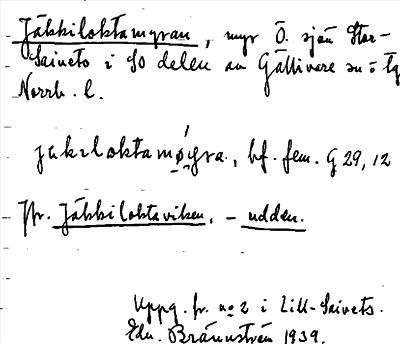 Jäkkiloktamyran, myr Ö. sjön Stor-
Saivets i SO delen av Gällivare sn o tg
Norrb. l.
jäkiloktamø̱y̱ra, bf. fem. G 29, 12
Jfr. Jäkkiloktaviken, - udden.
Uppg. fr. no 2 i Lill-Saivets.
Edv. Brännström 1939.